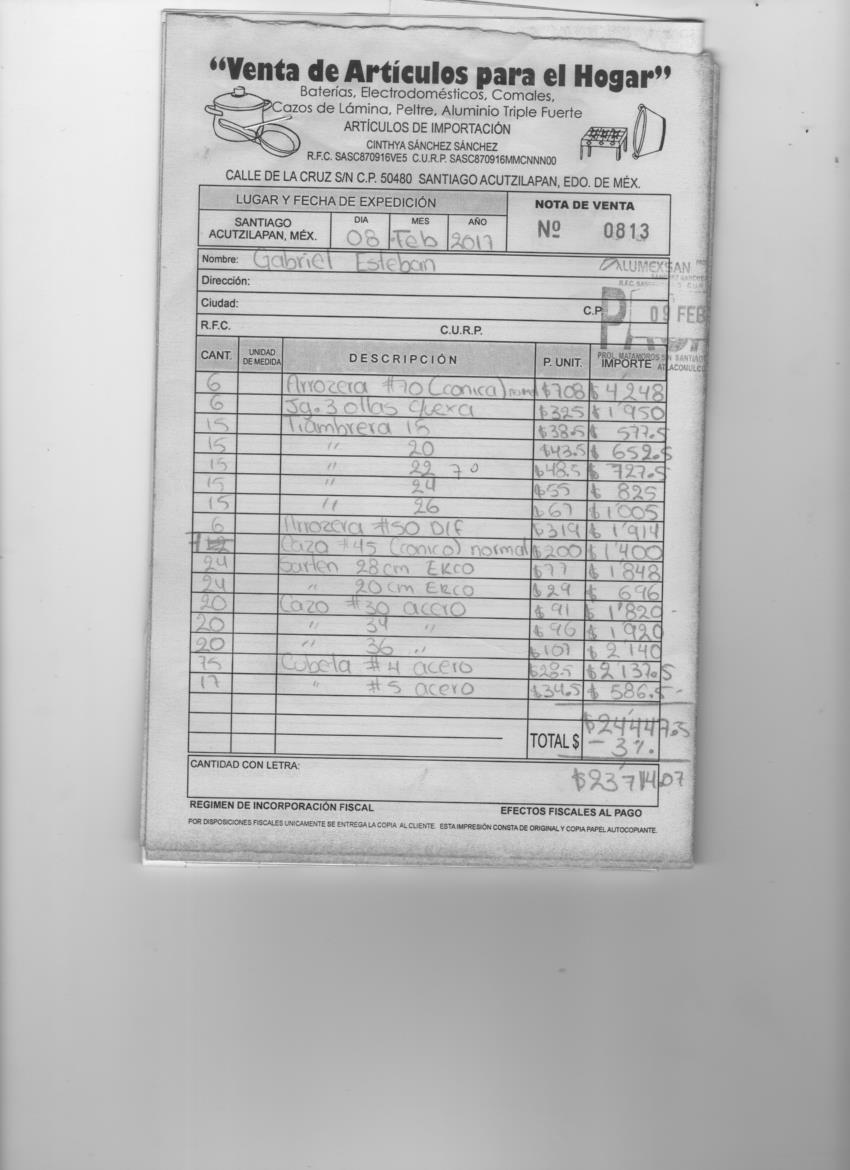 "Venta de Artículos para el Hogar"
Baterías, Electrodomésticos, Comales,
Cazos de Lámina, Peltre, Aluminio Triple Fuerte
ARTÍCULOS DE IMPORTACIÓN
CINTHYA SÁNCHEZ SÁNCHEZ
R.F.C. SASC870916VE5 C.U.R.P. SASC870916MMCNNN00
CALLE DE LA CRUZ S/N C.P. 50480 SANTIAGO ACUTZILAPAN, EDO. DE MÉX.
LUGAR Y FECHA DE EXPEDICIÓN
NOTA DE VENTA
SANTIAGO ACUTZILAPAN, MÉX.
DIA MES AÑO
08 Feb 2017
Nº 0813
Nombre: Gabriel Esteban
ALUMEXSAN
Dirección:
Ciudad: C.P.
09 FEB
R.F.C. C.U.R.P.
PROL. MATAMOROS S/N SANTIAGO
ATLACOMULCO
CANT. UNIDAD DE MEDIDA DESCRIPCIÓN P. UNIT. IMPORTE
6 Arrozera #70 (conica) $708 $4'248
6 Jg. 3 ollas $325 $1'950
15 Fiambrera 15 $38.5 $577.5
15 " 20 $43.5 $652.5
15 " 22 $48.5 $727.5
15 " 24 $55 $825
15 " 26 $67 $1'005
6 Arrozera #50 DIF $319 $1'914
7 Cazo #45 (conico) normal $200 $1'400
24 Sarten 28cm EKCO $77 $1'848
24 " 20cm EKCO $29 $696
20 Cazo #30 acero $91 $1'820
20 " 34 " $96 $1'920
20 " 36 " $107 $2'140
75 Cubeta #4 acero $28.5 $2'137.5
17 " #5 acero $34.5 $586.5
TOTAL $ $24'447.5
- 3%
CANTIDAD CON LETRA:
$23'714.07
REGIMEN DE INCORPORACIÓN FISCAL EFECTOS FISCALES AL PAGO
POR DISPOSICIONES FISCALES UNICAMENTE SE ENTREGA LA COPIA AL CLIENTE. ESTA IMPRESIÓN CONSTA DE ORIGINAL Y COPIA PAPEL AUTOCOPIANTE.